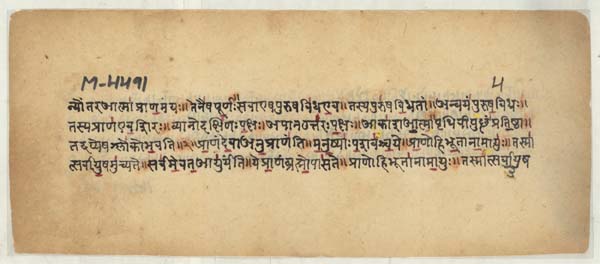 न्योंतरआत्माप्राणमयः॥तेनैषपूर्णः॥सवाएषपुरुषविधएव॥तस्यपुरुषविधतां॥अन्वयंपुरुषविधः॥
तस्यप्राणएवशिरः॥व्यानोदक्षिणःपक्षः॥अपानउत्तरःपक्षः॥आकाशआत्मा॥पृथिवीपुच्छंप्रतिष्ठा॥
तदप्येषश्लोकोभवति॥२॥प्राणंदेवाअनुप्राणंति॥मनुष्याःपशवश्चये॥प्राणोहिभूतानामायुः॥तस्मा
त्सर्वायुषमुच्यते॥सर्वमेवतआयुर्यंति॥येप्राणंब्रह्मोपासते॥प्राणोहिभूतानामायुः॥तस्मात्सर्वायुष